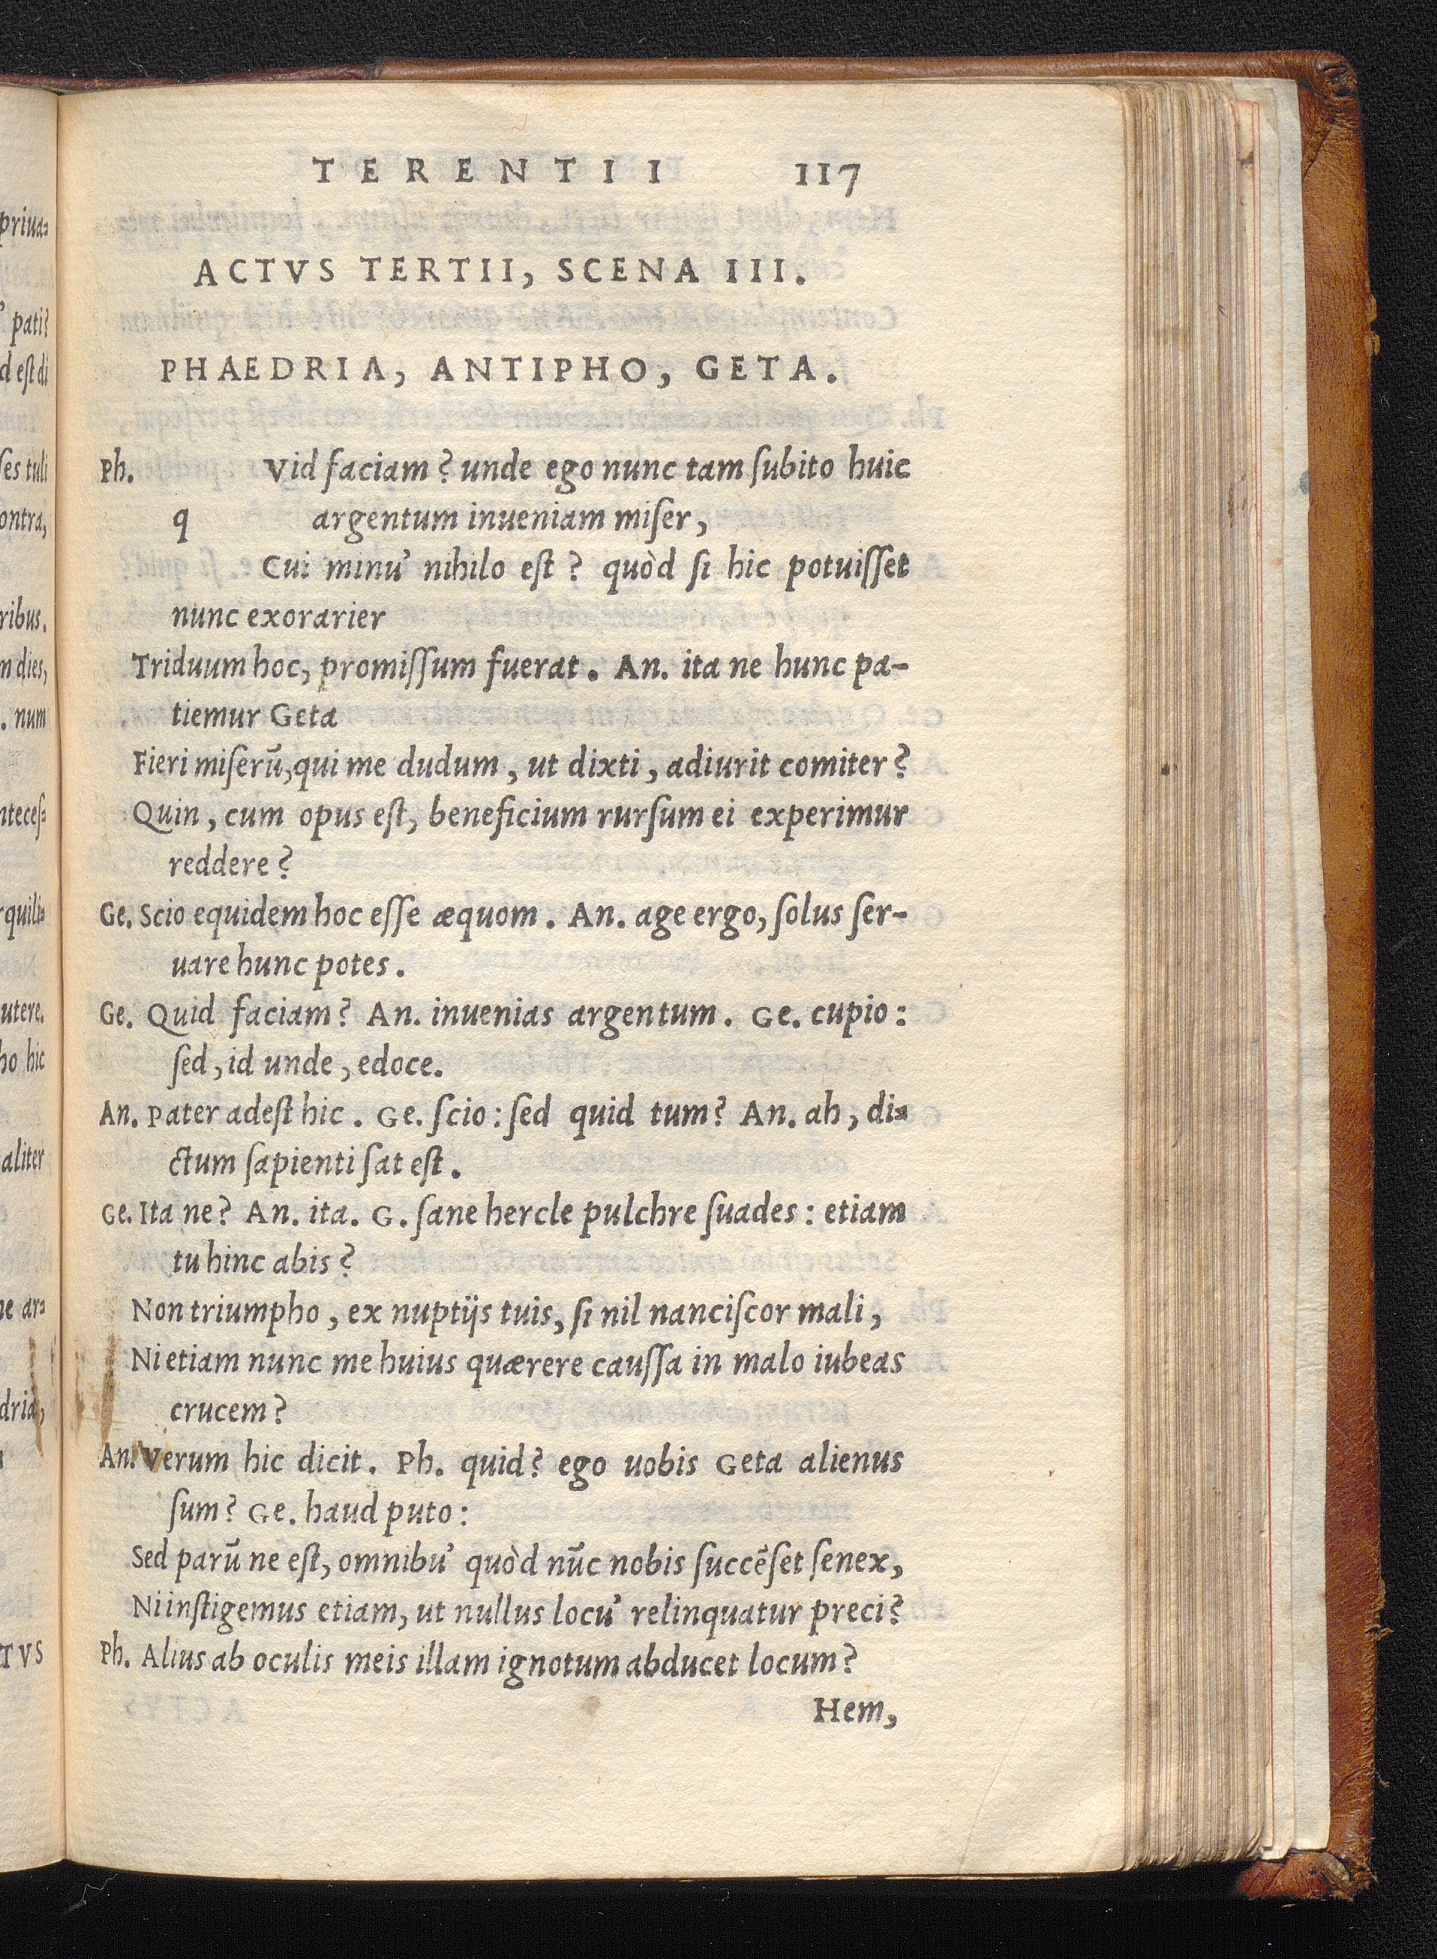 TERENTII 117
ACTVS TERTII, SCENA III.
PHAEDRIA, ANTIPHO, GETA.
Ph. Vid faciam? unde ego nunc tam ſubito huic
q argentum inueniam miſer,
Cui minu' nihilo eſt? quòd ſi hic potuiſſet
nunc exorarier
Triduum hoc, promiſſum fuerat. An. ita ne hunc pa-
tiemur Geta
Fieri miſerū, qui me dudum, ut dixti, adiurit comiter?
Quin, cum opus eſt, beneficium rurſum ei experimur
reddere?
Ge. Scio equidem hoc eſſe æquom. An. age ergo, ſolus ſer-
uare hunc potes.
Ge. Quid faciam? An. inuenias argentum. Ge. cupio:
ſed, id unde, edoce.
An. Pater adeſt hic. Ge. ſcio: ſed quid tum? An. ah, di-
ctum ſapienti ſat eſt.
Ge. Ita ne? An. ita. G. ſane hercle pulchre ſuades: etiam
tu hinc abis?
Non triumpho, ex nuptijs tuis, ſi nil nanciſcor mali,
Ni etiam nunc me huius quærere cauſſa in malo iubeas
crucem?
An. Verum hic dicit. Ph. quid? ego uobis Geta alienus
ſum? Ge. haud puto:
Sed parū ne eſt, omnibu' quòd nūc nobis ſuccēſet ſenex,
Ni inſtigemus etiam, ut nullus locu' relinquatur preci?
Ph. Alius ab oculis meis illam ignotum abducet locum?
Hem,